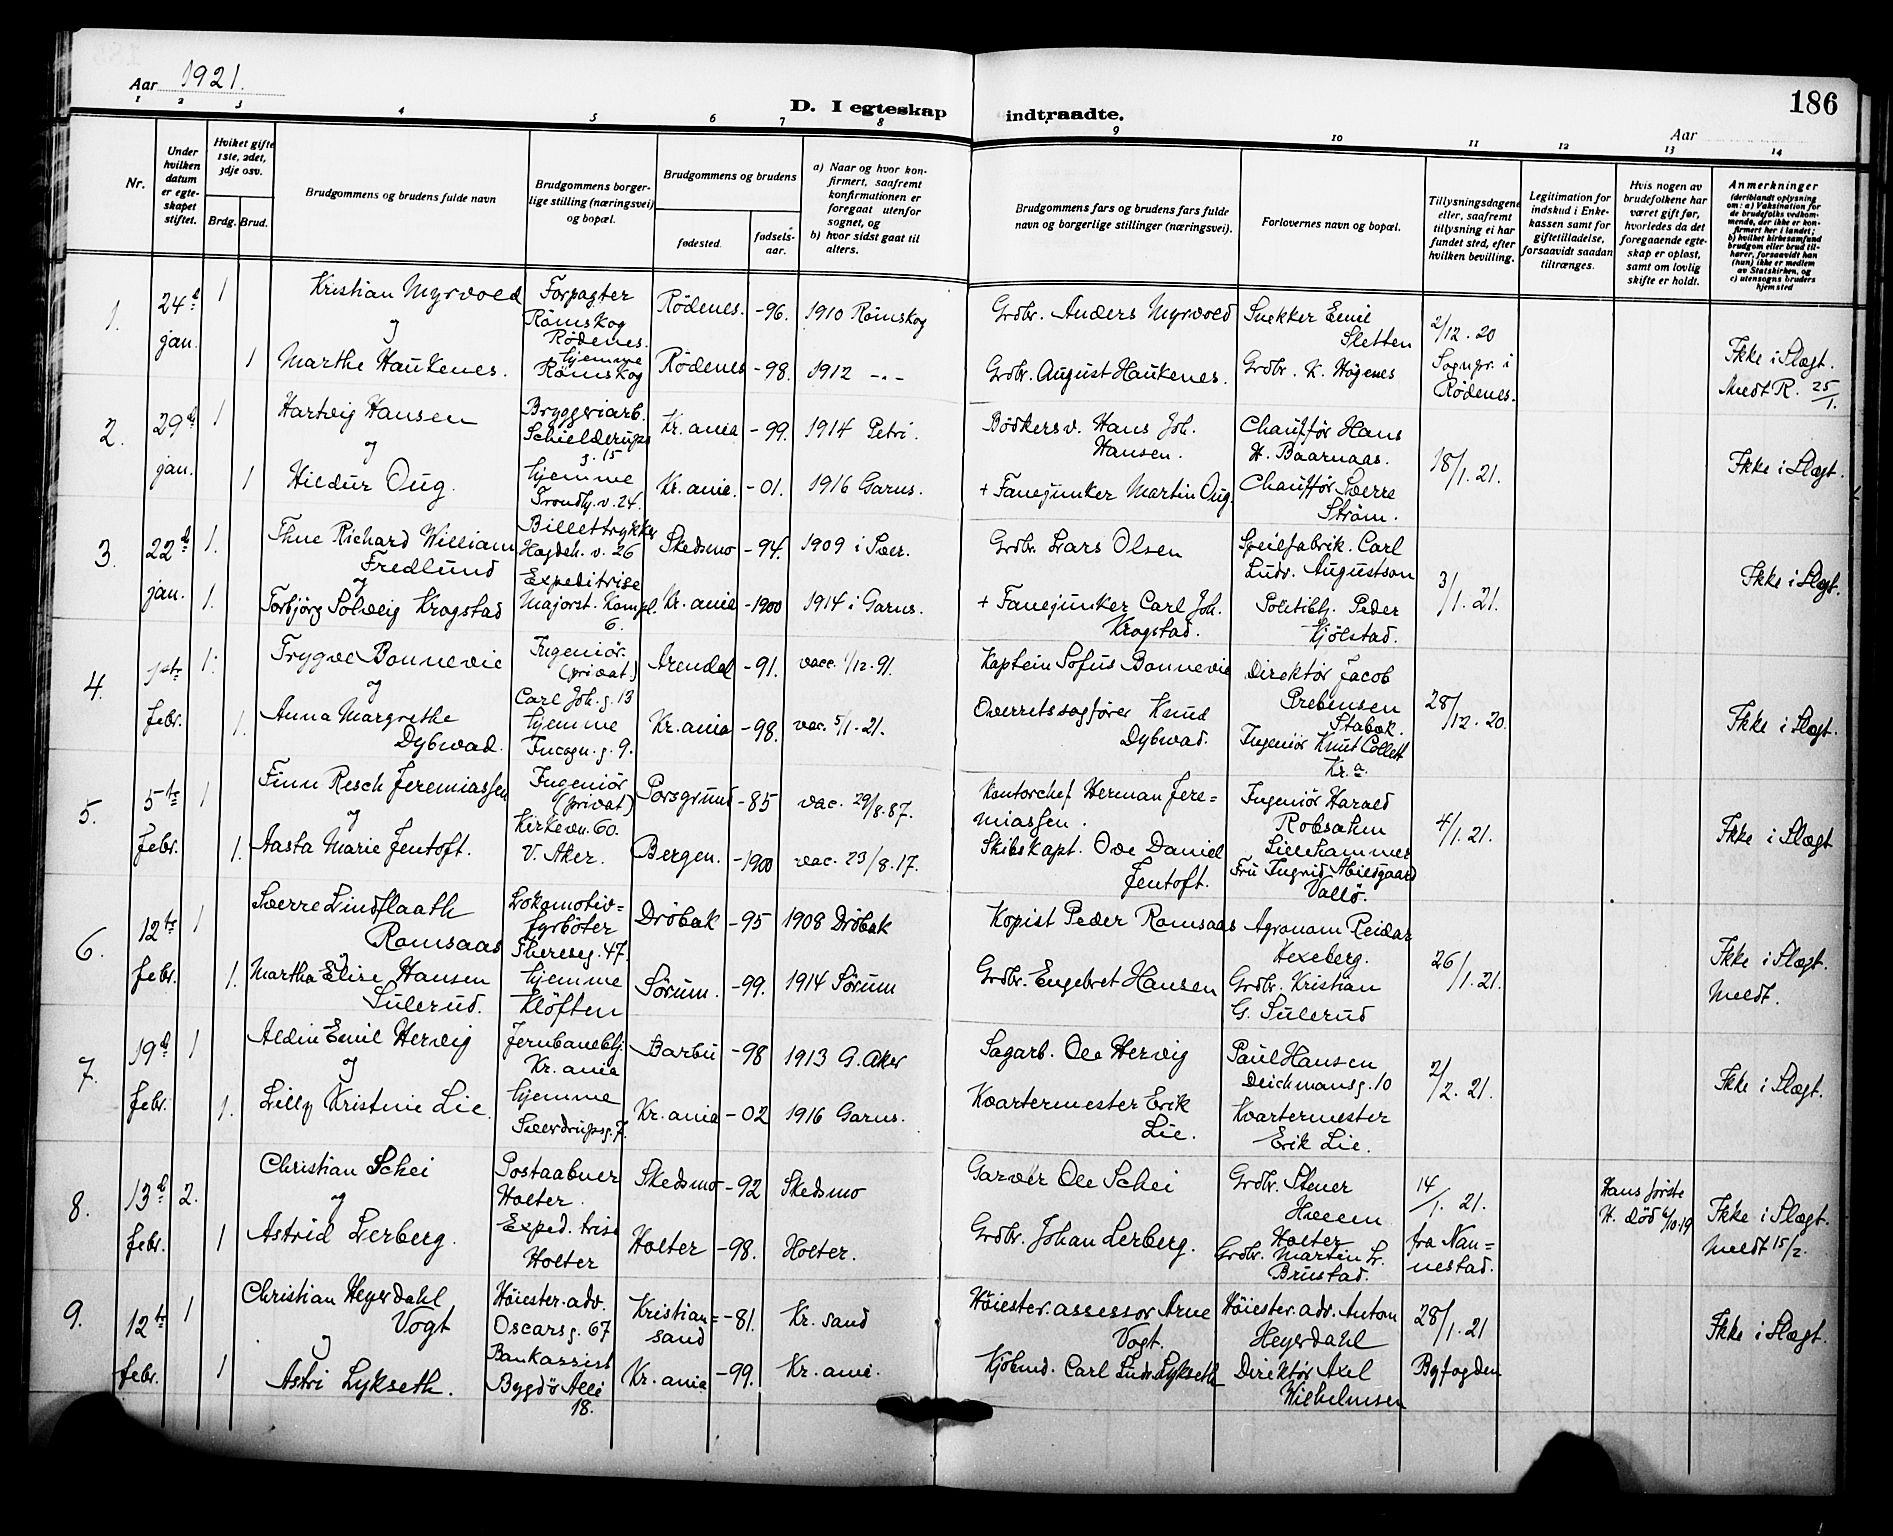 Aar 1921.
D. I egteskap indtraadte.
186
Aar
1 2 3 4 5 6 7 8 9 10 11 12 13 14
Nr.
Under hvilken datum er egteskapet stiftet.
Hvilket gifte 1ste, 2det, 3dje osv.
Brdg. Brud.
Brudgommens og brudens fulde navn
Brudgommens borgerlige stilling (næringsvei) og bopæl.
Brudgommens og brudens
fødested.
fødselsaar.
a) Naar og hvor konfirmert, saafremt konfirmationen er foregaat utenfor sognet, og
b) hvor sidst gaat til alters.
Brudgommens fars og brudens fars fulde navn og borgerlige stillinger (næringsvei).
Forlovernes navn og bopæl.
Tillysningsdagene eller, saafremt tillysning ei har fundet sted, efter hvilken bevilling.
Legitimation for indskud i Enkekassen samt for giftetilladelse, forsaavidt saadan tiltrænges.
Hvis nogen av brudefolkene har været gift før, hvorledes da det foregaaende egteskap er opløst, samt om lovlig skifte er holdt.
Anmerkninger (deriblandt oplysning om: a) Vaksination for de brudefolks vedkommende, der ikke er konfirmert her i landet; b) hvilket kirkesamfund brudgom eller brud tilhører, forsaavidt han (hun) ikke er medlem av Statskirken, og c) utensogns bruders hjemsted
1. 24d jan. 1 Kristian Myrvold Forpagter Rømskog Rødenes. Rødenes. -96. 1910 Rømskog Grdbr. Anders Myrvold Snekker Emil Sletten 2/12.20 Sognepr. i Rødenes. Ikke i Slægt. Meldt R. 25/1.
og
1 Marthe Haukenes. hjemme Rømskog Rødenes -98. 1912 -"- Grdbr. August Haukenes. Grdbr. K. Høgenes
2. 29d jan. 1 Hartvig Hansen Bryggeriarb. Schielderups g. 15 Kr.ania -99. 1914 Petri. Bødkersv. Hans Joh. Hansen. Chauffør Hans H. Baarnaas. 18/1.21. Ikke i Slægt.
og
1 Hildur Oug. hjemme Trondhj.v.24. Kr.ania. -01. 1916 Garns. + Fanejunker Martin Oug Chauffør Sverre Strøm.
3. 22d jan. 1. Thure Richard William Fredlund Billettrykker Hegdeh.v.26 Skedsmo -94. 1909 i Sver. Grdbr. Lars Olsen Speilfabrik. Carl Ludv. Augustson 3/1.21. Ikke i Slægt.
og
1. Torbjørg Solveig Krogstad Expeditrise Majorst. Kompl. 6. Kr.ania -1900 1914 i Garns. + Fanejunker Carl Joh. Krogstad. Politibtj. Peder Kjølstad.
4. 1ste febr. 1. Trygve Bonnevie Ingeniør. (privat) Carl Joh.g.13 Arendal -91. vacc. 1/12.91. Kaptein Sofus Bonnevie Direktør Jacob Prebensen Stabæk. 28/12.20. Ikke i Slægt.
og
1. Anna Margrethe Dybwad. hjemme Incogn.g.9. Kr.ania -98. vac. 5/1.21. Overretssagfører Knud Dybwad. Ingeniør Knut Collett Kr.a.
5. 5te febr. 1 Finn Resch Jeremiassen Ingeniør (privat) Kirkevn.60. Porsgrund -85 vac. 29/8.87. Kontorchef Herman Jeremiassen. Ingeniør Harald Robsahm Lillehammer 4/1.21. Ikke i Slægt
og
1. Aasta Marie Jentoft. V. Aker. Bergen. -1900 vac. 23/8.17. Skibskapt. Ove Daniel Jentoft. Fru Ingrid Abildgaard Vallø.
6. 12te febr. 1 Sverre Lindflaath Ramsaas Lokomotivfyrbøter Thereseg.47. Drøbak -95 1908 Drøbak Kopist Peder Ramsaas Agronom Reidar Hexeberg. 26/1.21. Ikke i Slægt. Meldt.
og
1. Martha Elise Hansen Sulerud. hjemme Kløften Sørum. -99. 1914 Sørum Grdbr. Engebret Hansen Grdbr. Kristian G. Sulerud
7. 19d febr. 1 Aldin Emil Hervig Jernbanebtj. Kr.ania Barbu -98 1913 G. Aker Sagarb. Ole Hervig Paul Hansen Deichmansg.10 2/2.21. Ikke i Slægt.
og
1. Lilly Kristine Lie. hjemme Sverdrupsg.7. Kr.ania -02 1916 Garns. Kvartermester Erik Lie. Kvartermester Erik Lie.
8. 13d febr. 2. Christian Schei Postaabner Holter. Skedsmo -92 Skedsmo Garver Ole Schei Grdbr. Stener Holter 14/1.21. fra Nannestad. Hans første H. død 6/10.19 Ikke i Slægt. Meldt 15/2.
og
1 Astrid Lerberg. Exped.trise Holter Holter -98. Holter. Grdbr. Johan Lerberg. Grdbr. Martin Brustad.
9. 12te febr. 1 Christian Heyerdahl Vogt Høiester.adv. Oscarsg.67 Kristiansand -81. Kr.sand Høiester.assessor Arne Vogt. Høiester.adv. Anton Heyerdahl 28/1.21 Byfogden Ikke i Slægt.
og
1 Astri Lykseth. Bankassist Bygdø Alle 18. Kr.ania -99. Kr.ania. Kjøbmd. Carl Ludv. Lykseth Direktør Axel Wilhelmsen